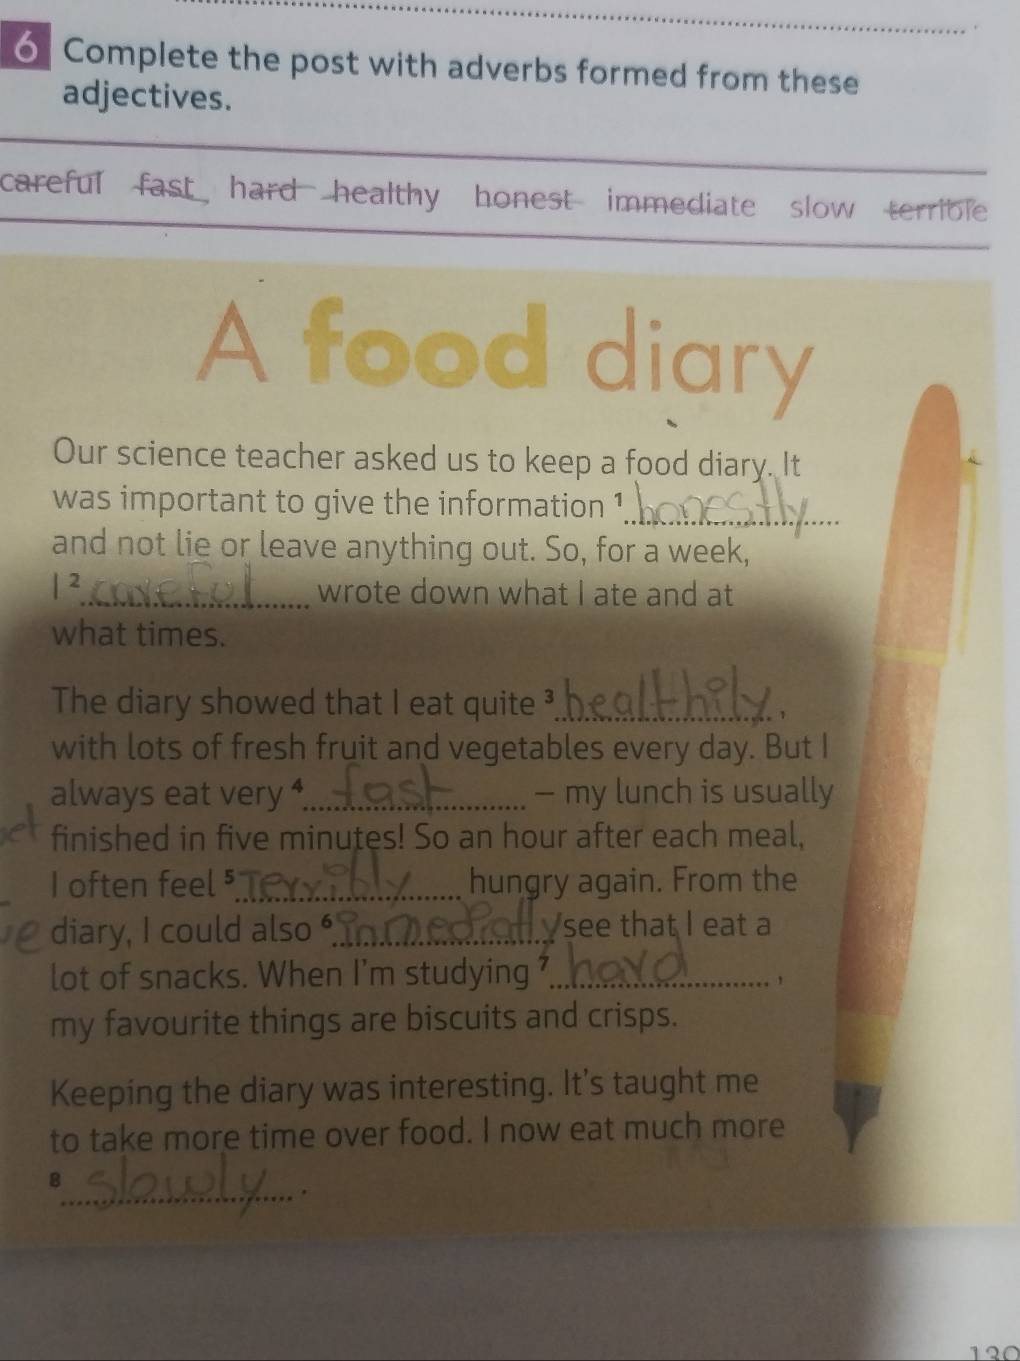 6 Complete the post with adverbs formed from these
adjectives.
careful fast hard healthy honest immediate slow terrible
A food diary
Our science teacher asked us to keep a food diary. It
was important to give the information ¹ honestly
and not lie or leave anything out. So, for a week,
I ² careful wrote down what I ate and at
what times.
The diary showed that I eat quite ³ healthily ,
with lots of fresh fruit and vegetables every day. But I
always eat very ⁴ fast – my lunch is usually
finished in five minutes! So an hour after each meal,
I often feel ⁵ Terribly hungry again. From the
diary, I could also ⁶ see that I eat a
lot of snacks. When I'm studying ⁷ hard ,
my favourite things are biscuits and crisps.
Keeping the diary was interesting. It's taught me
to take more time over food. I now eat much more
⁸ slowly .